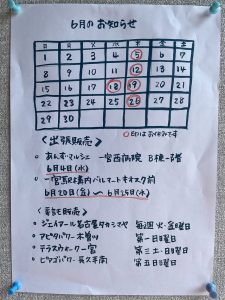 6月のお知らせ
日 月 火 水 木 金 土
1 2 3 4 5 6 7
8 9 10 11 12 13 14
15 16 17 18 19 20 21
22 23 24 25 26 27 28
29 30
○印はお休みです
〈出張販売〉
・あんず・マルシェ 一宮西病院 B棟一階
6月4日(水)
・一宮駅構内パルマートキヨスク前
6月20日(金)〜6月25日(水)
〈委託販売〉
・ジェイアール名古屋タカシマヤ 毎週火・金曜日
・アピタパワー木曽川 第一日曜日
・テラスウォーク一宮 第三土・日曜日
・ピアゴパワー長久手南 第五日曜日